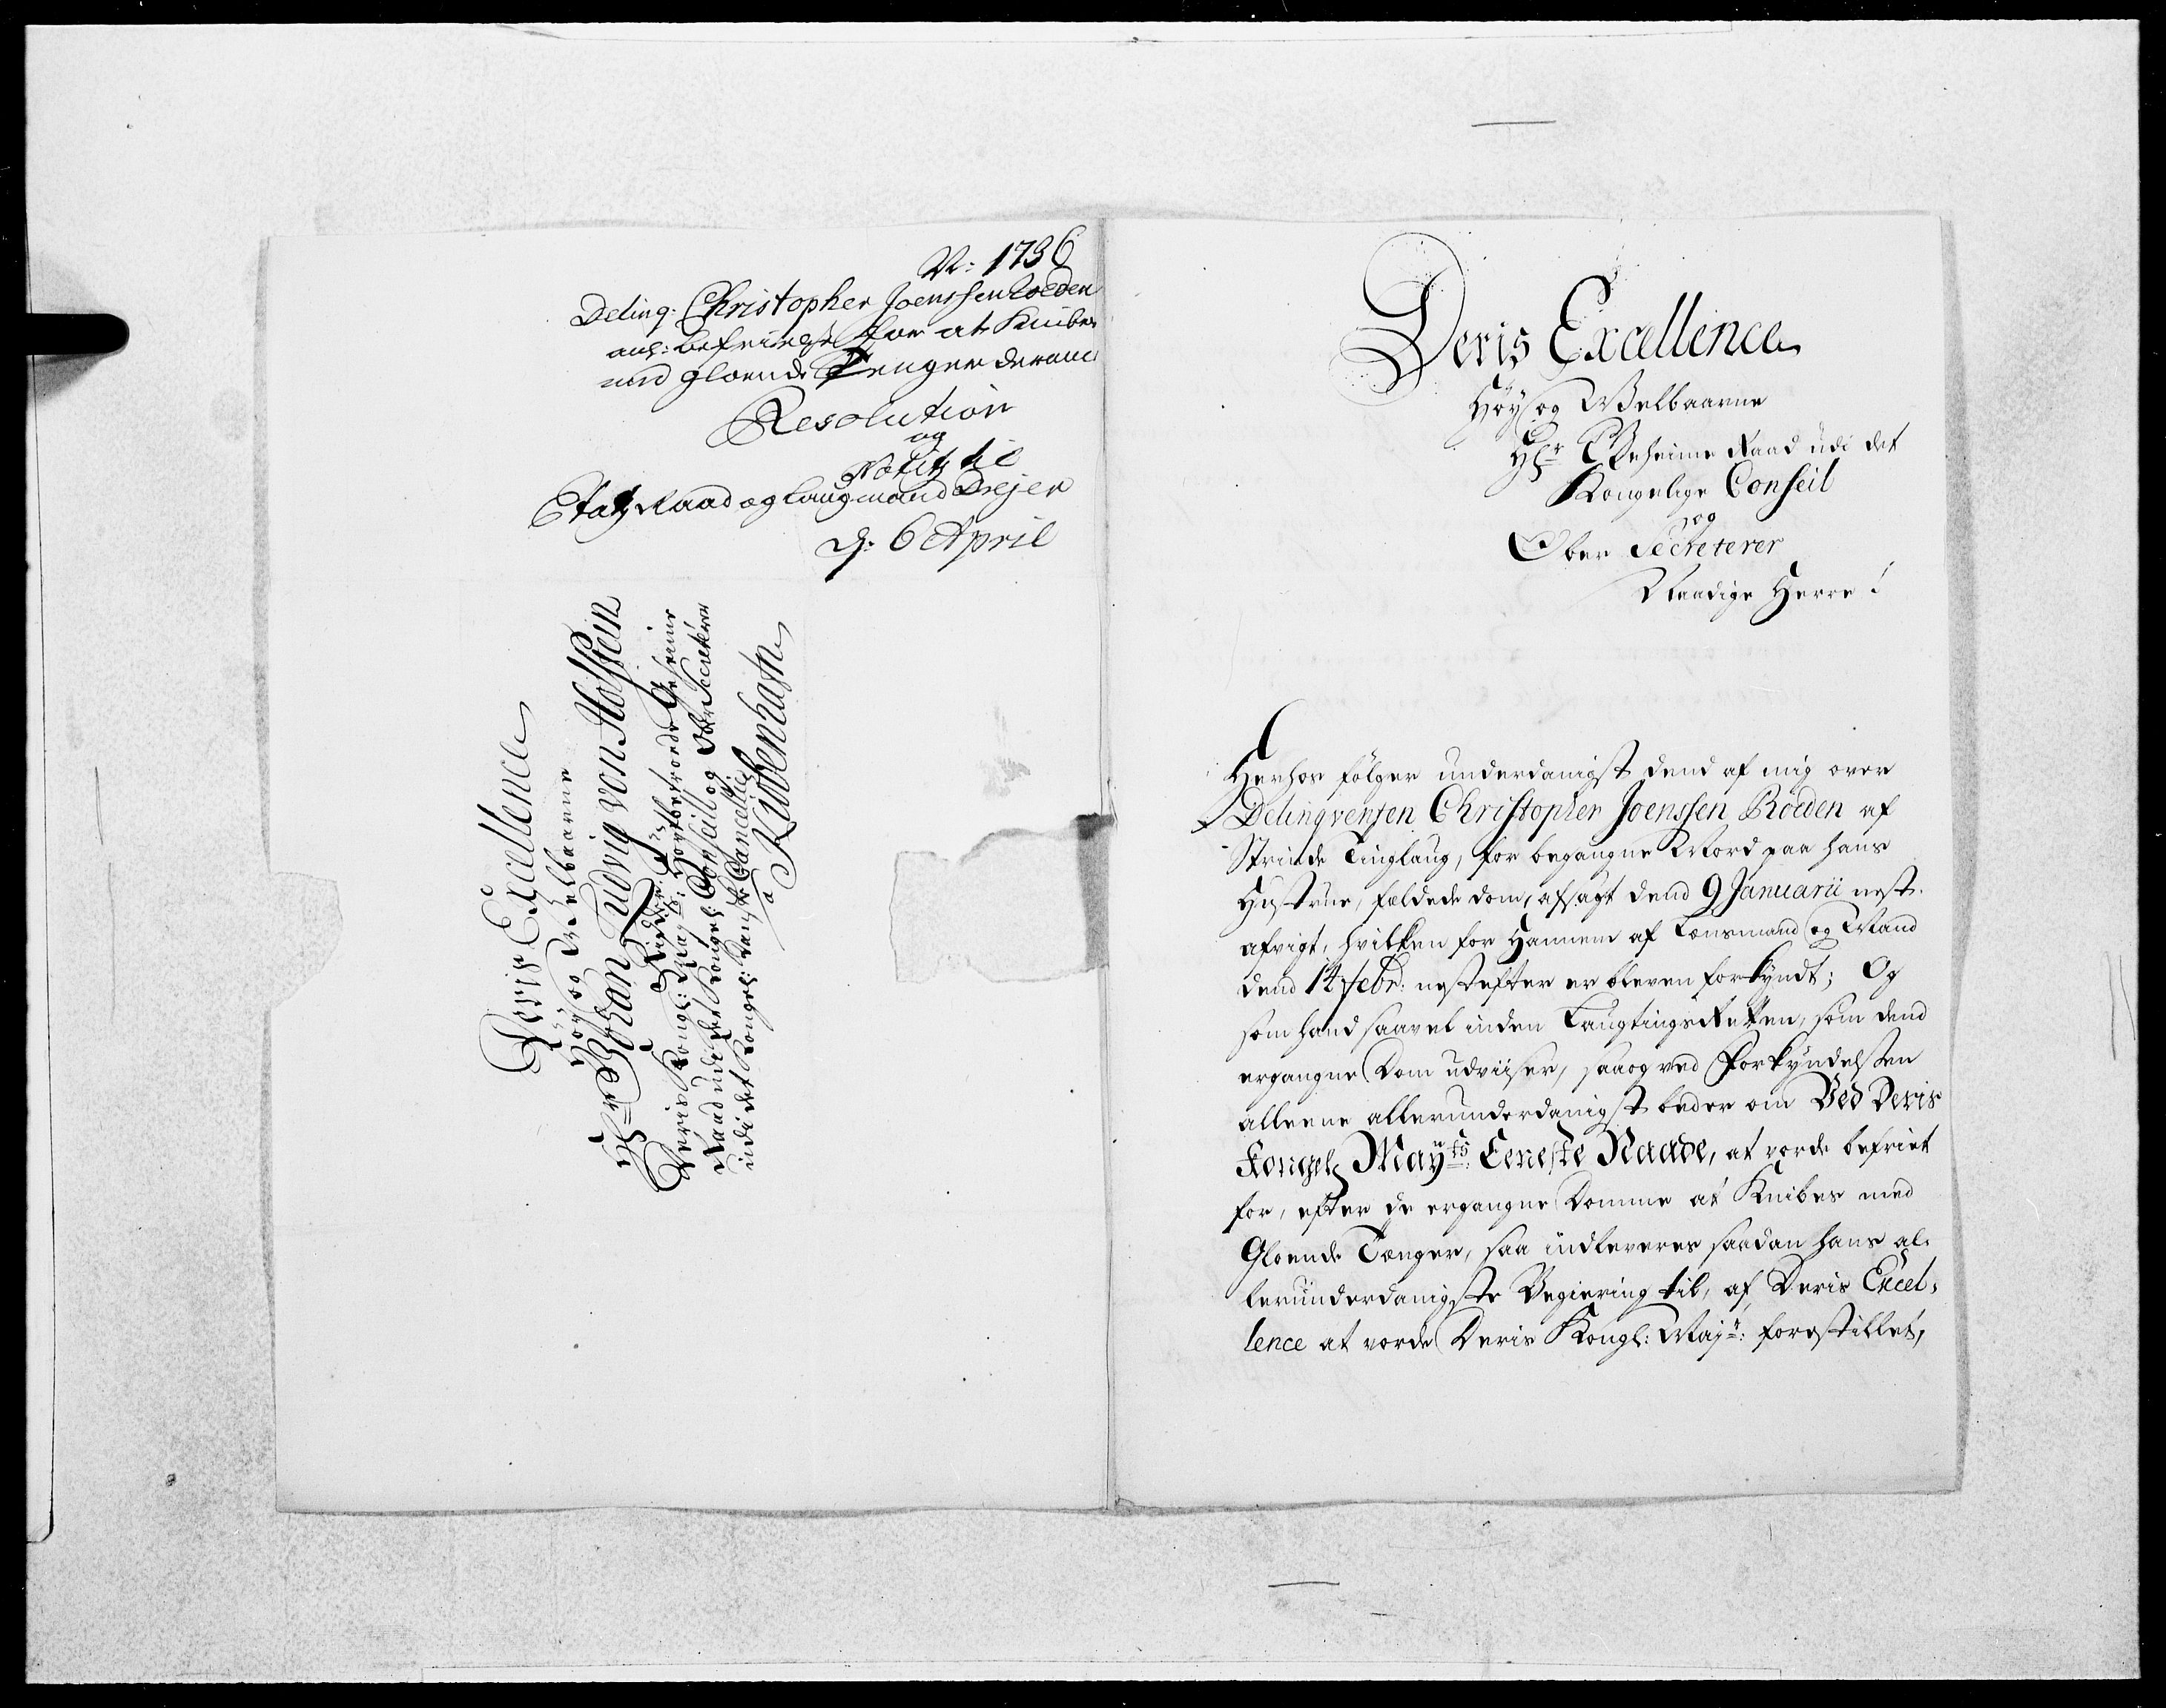 N: 1736
Delinq: Christopher Joenssen Roeden
anh: befrielse for at Knibes
med gloende Tenger derom
Resolution
og
Notitz til
Etatz Raad og Laugmand Drejer
d: 6 April
Deris Excellence
Høy og Velbaarne
Hr Johan Ludvig von Holstein
Ridder
Deris Kongl: Mayts: Høybetroede Geheime
Raad udi det Kongel: Conseil og Ober Secreterer
udi det Kongel: Danske Cancellie
a Kiøbenhafn
Deris Excellence
Høy og Welbaarne
Hr Geheime Raad udi det
Kongelige Conseil
og
Ober Secreterer
Naadige Herre!
Herhos følger underdanigst dend af mig over
Delinqventen Christopher Joenssen Röeden af
Strinde Tinglaug, for begangne Mord paa hans
Hustrue, fældede dom, afsagt dend 9 Januarii nest-
afvigt, hvilken for Hannem af Lensmand og Mand
dend 14 Febr: nestefter er bleven forkyndt; Og
som hand saavel inden Laugtings Retten, som dend
ergangne Dom udviiser, saa og ved Forkyndelsen
alleene allerunderdanigst beder om Ved Deris
Kongel Mayts: Eeneste Naade, at vorde befriet
for, efter de ergangne Domme at Knibes med
Gloende Tænger, saa indleveres saadan hans al-
lerunderdanigste Begiering til, af Deris Excel-
lence at vorde Deris Kongl: Majt: forestillet,